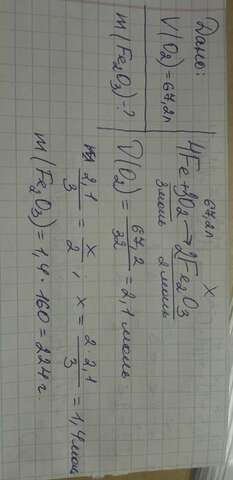 Дано:
V(O2)=67,2л
m(Fe2O3)-?
67,2л x
4Fe+3O2→2Fe2O3
3моль 2 моль
V(O2)=67,2/32=2,1 моль
2,1/3 = x/2; x = 2·2,1/3 = 1,4моль
m(Fe2O3)=1,4·160=224г